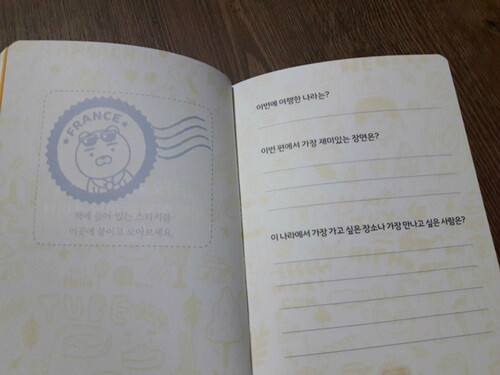 FRANCE
책에 들어 있는 스티커를
이곳에 붙이고 모아보세요.
Hello
이번에 여행한 나라는?
이번 편에서 가장 재미있는 장면은?
이 나라에서 가장 가고 싶은 장소나 가장 만나고 싶은 사람은?